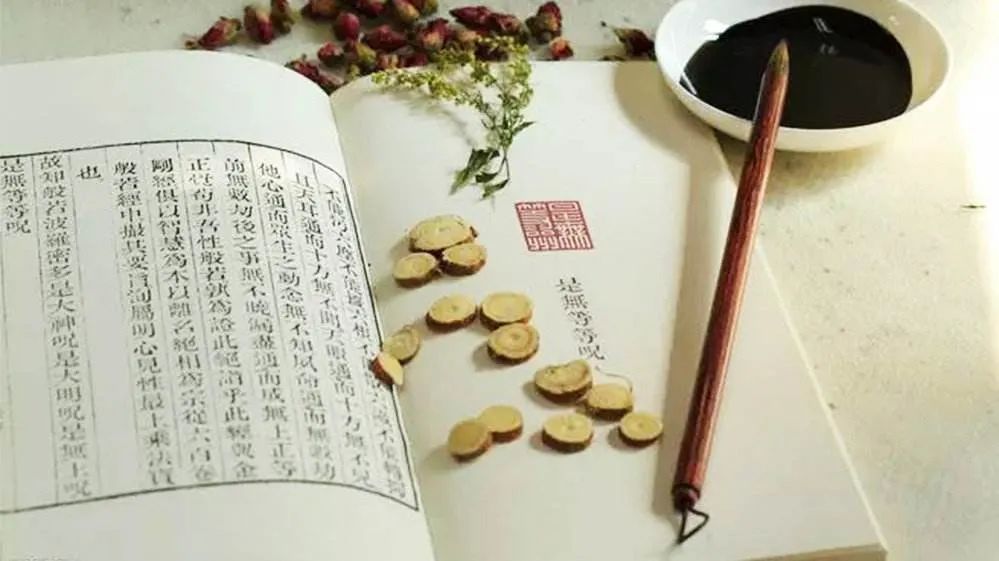 是無等等呪
不能
且天耳通而十方無不聞天眼通而十方無不見
他心通而眾生之動念無不知夙命通而無數劫
前無數劫後之事無不曉漏盡通而成無上正等
正覺苟非吾性般若孰為證此絕詣乎此經與金
剛經俱以智慧為本以離名絕相為宗從六百卷
般若經中撮其要旨洵屬明心見性最上乘法寶
也
故知般若波羅密多是大神呪是大明呪是無上呪
是無等等呪